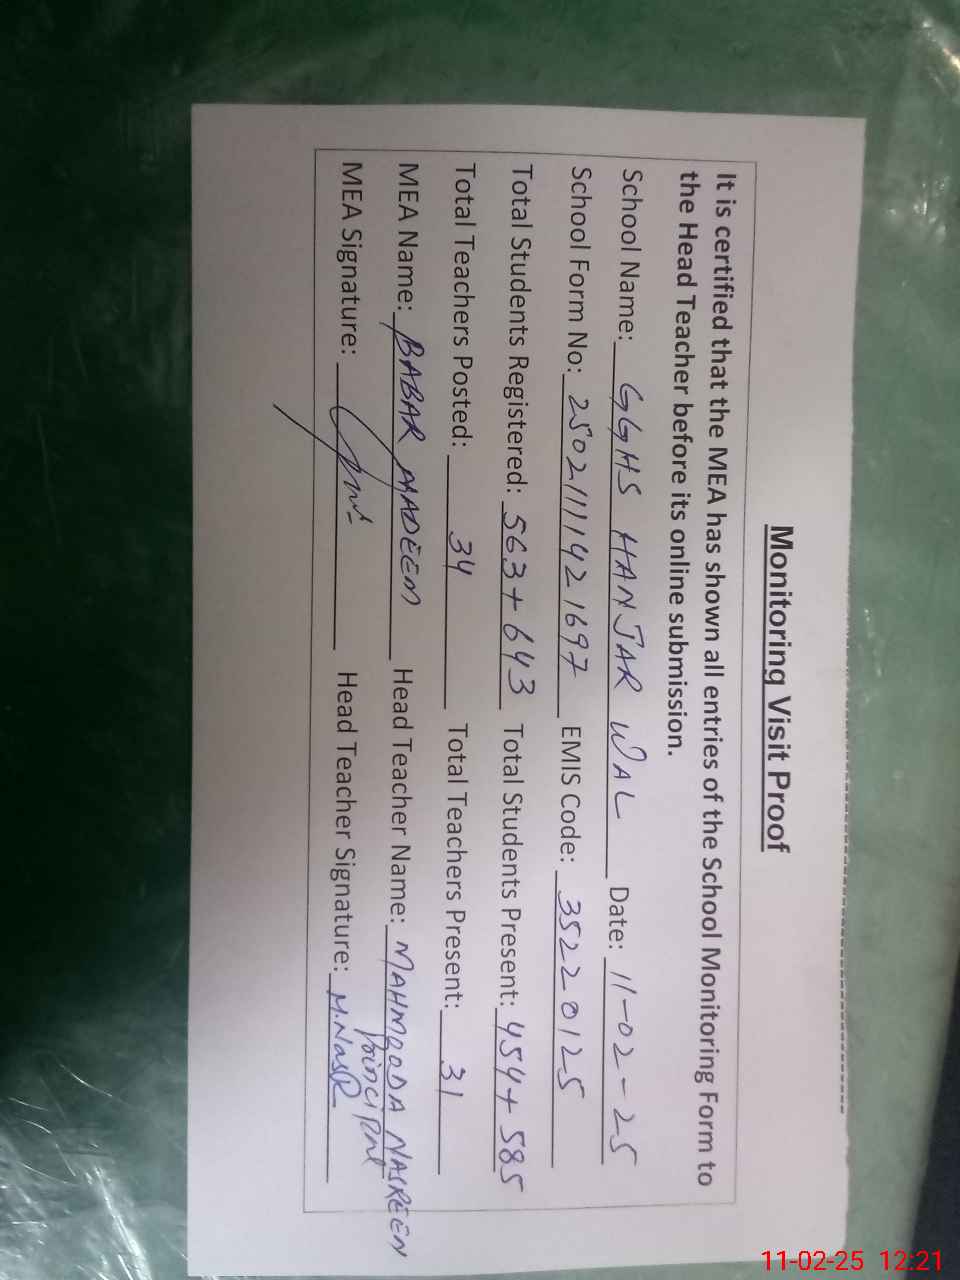 Monitoring Visit Proof
It is certified that the MEA has shown all entries of the School Monitoring Form to
the Head Teacher before its online submission.
School Name: GGHS HANJAR WAL Date: 11-02-25
School Form No: 25021111421697 EMIS Code: 35220125
Total Students Registered: 563+643 Total Students Present: 454+585
Total Teachers Posted: 34 Total Teachers Present: 31
MEA Name: BABAR NADEEM Head Teacher Name: MAHMOODA NASREEN
Principal
MEA Signature: Head Teacher Signature: M.NasR
11-02-25 12:21